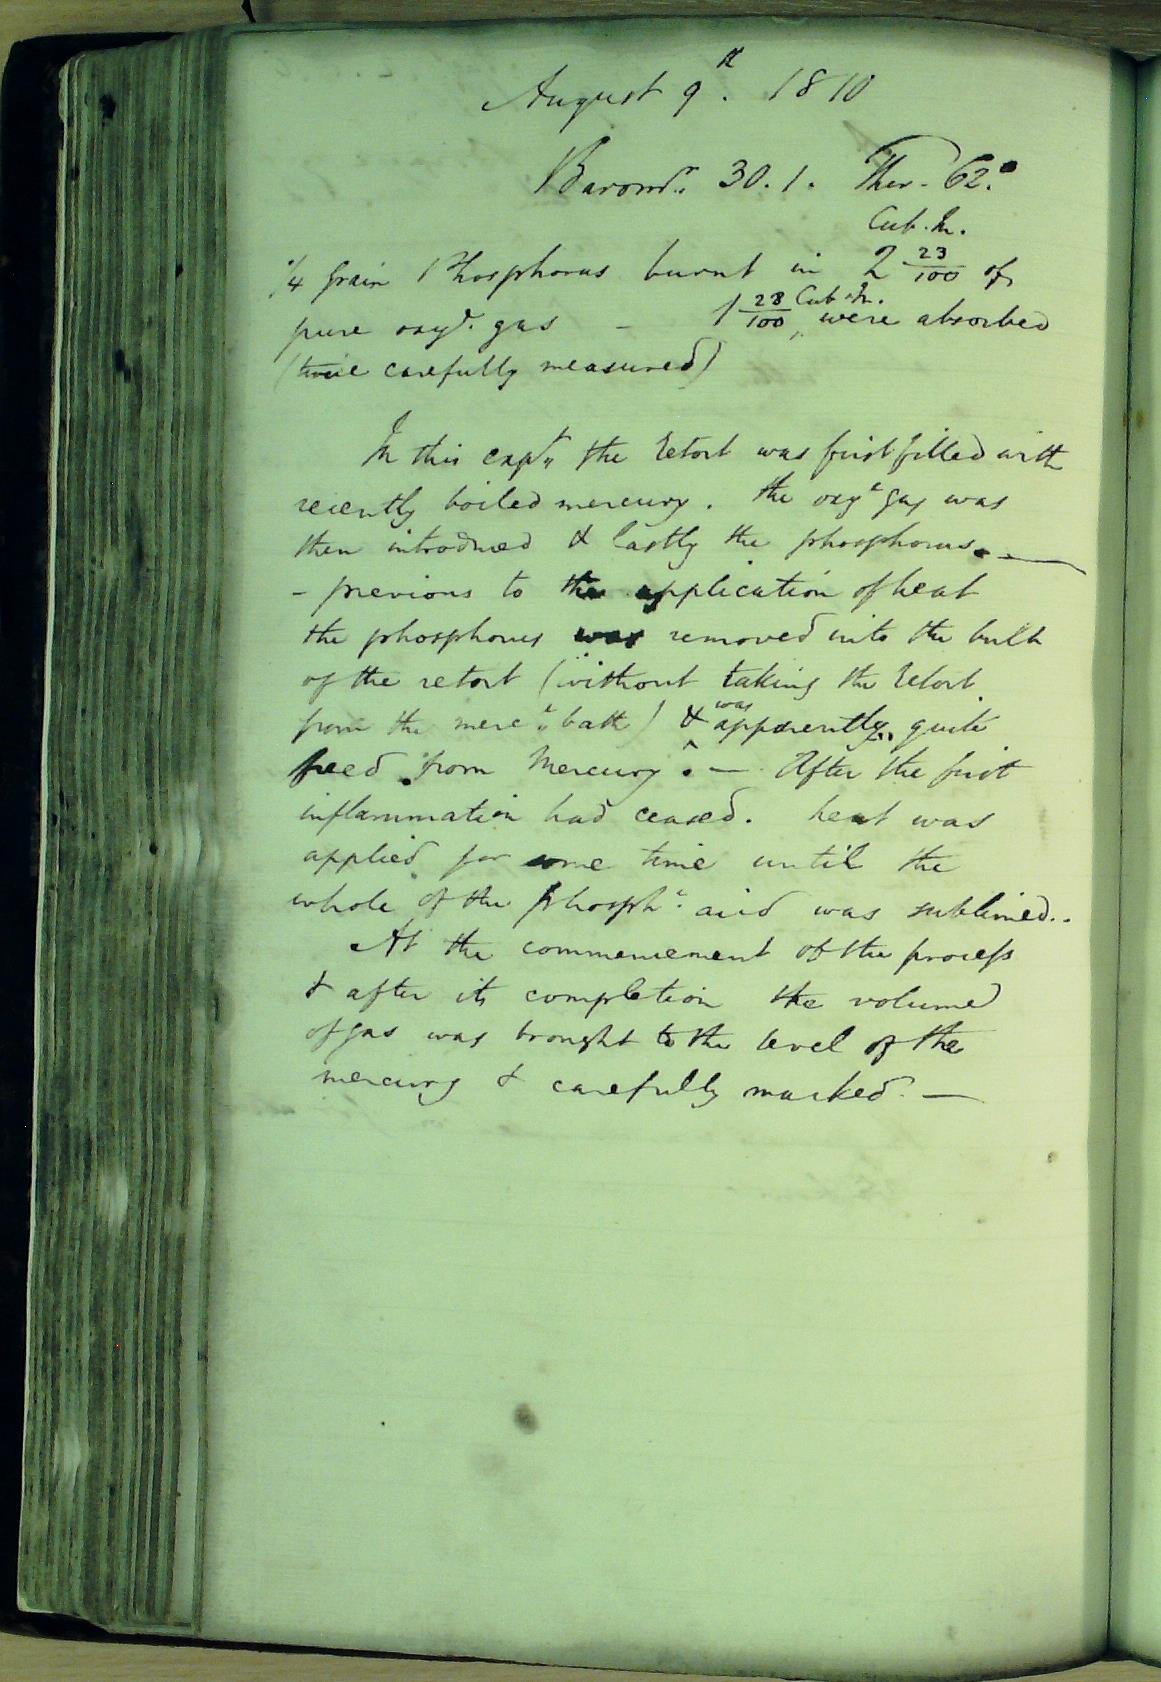 August 9th. 1810
Baromr. 30.1. Ther. 62.°
Cub. In.
1/4 grain Phosphorus burnt in 2 23/100 of
pure oxyg. gas – 1 28/100 Cub. In. were absorbed
(twice carefully measured)
In this expt. the retort was first filled with
recently boiled mercury. The oxye gas was
then introduced & lastly the phosphorus. —
– previous to the application of heat
the phosphorus was removed into the bulb
of the retort (without taking the retort
from the merc.l bath) & was apparently quite
freed from Mercury. — After the first
inflammation had ceased. heat was
applied for some time until the
whole of the phosph.c acid was sublimed..
At the commencement of the process
& after its completion the volume
of gas was brought to the level of the
mercury & carefully marked. —